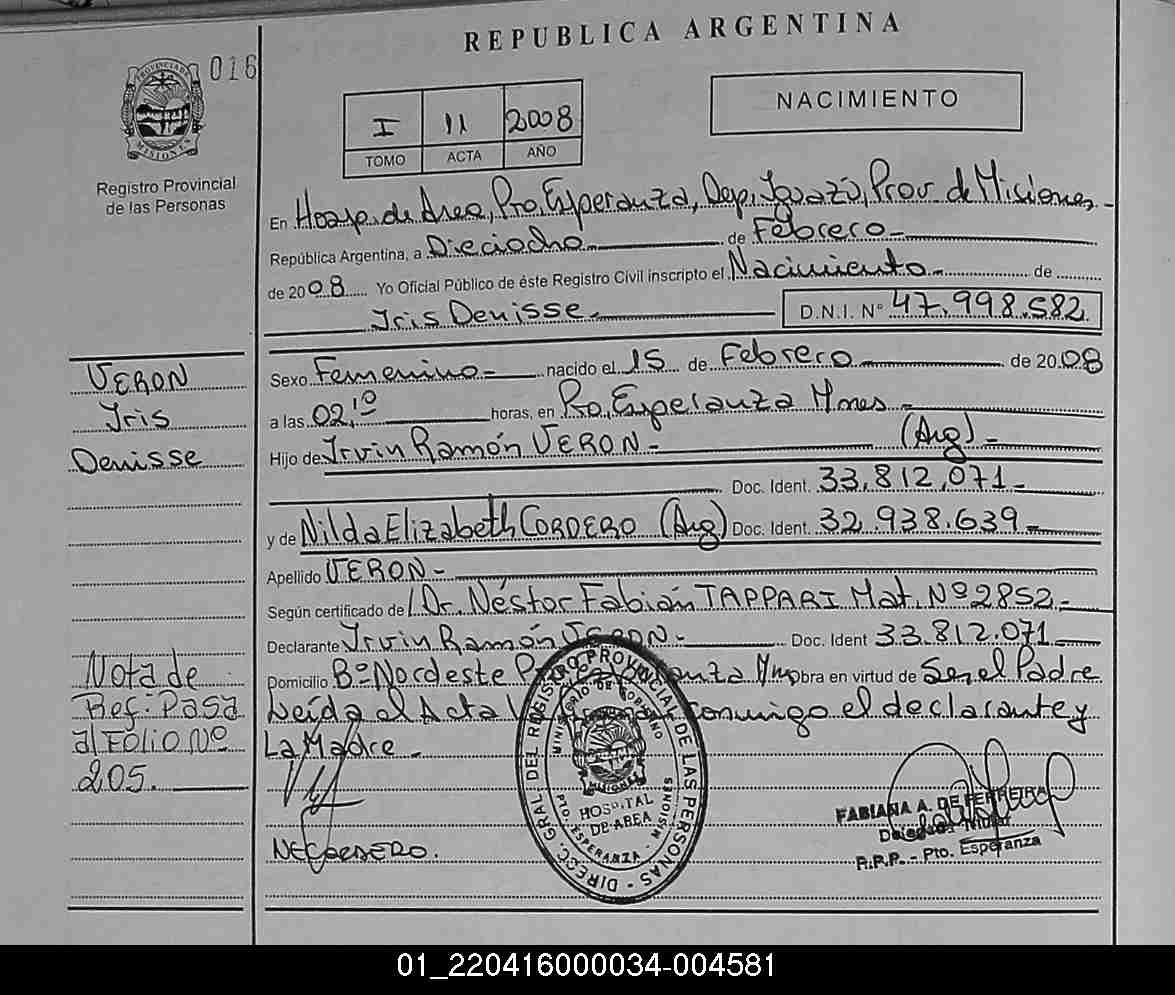 REPUBLICA ARGENTINA
016
PROVINCIA DE
MISIONES
Registro Provincial
de las Personas
I 11 2008
TOMO ACTA AÑO
NACIMIENTO
En Hosp. de Area, Pto. Esperanza, Dep. Iguazú, Prov. de Misiones
República Argentina, a Dieciocho de Febrero
de 2008 Yo Oficial Público de éste Registro Civil inscripto el Nacimiento de
Iris Denisse D.N.I. Nº 47.998.582
VERON
Iris
Denisse
Sexo Femenino nacido el 15 de Febrero de 2008
a las 02,10 horas, en Pto. Esperanza Mnes
Hijo de Irvin Ramón VERON (Arg)
Doc. Ident. 33.812.071
y de Nilda Elizabeth CORDERO (Arg) Doc. Ident. 32.938.639
Apellido VERON
Según certificado de Dr. Néstor Fabián TAPPARI Mat. Nº 2852
Declarante Irvin Ramón VERON Doc. Ident 33.812.071
Domicilio Bº Nordeste obra en virtud de Ser el Padre
Leída el Acta conmigo el declarante y
La Madre
Nota de
Ref. Pasa
al Folio Nº
205.
DIRECC. GRAL DEL REGISTRO PROVINCIAL DE LAS PERSONAS
MINISTERIO DE GOBIERNO
MISIONES
HOSPITAL
DE AREA
PTO. ESPERANZA - MISIONES
FABIANA A. DE FERREIRA
Delegada Titular
R.P.P. - Pto. Esperanza
01_220416000034-004581